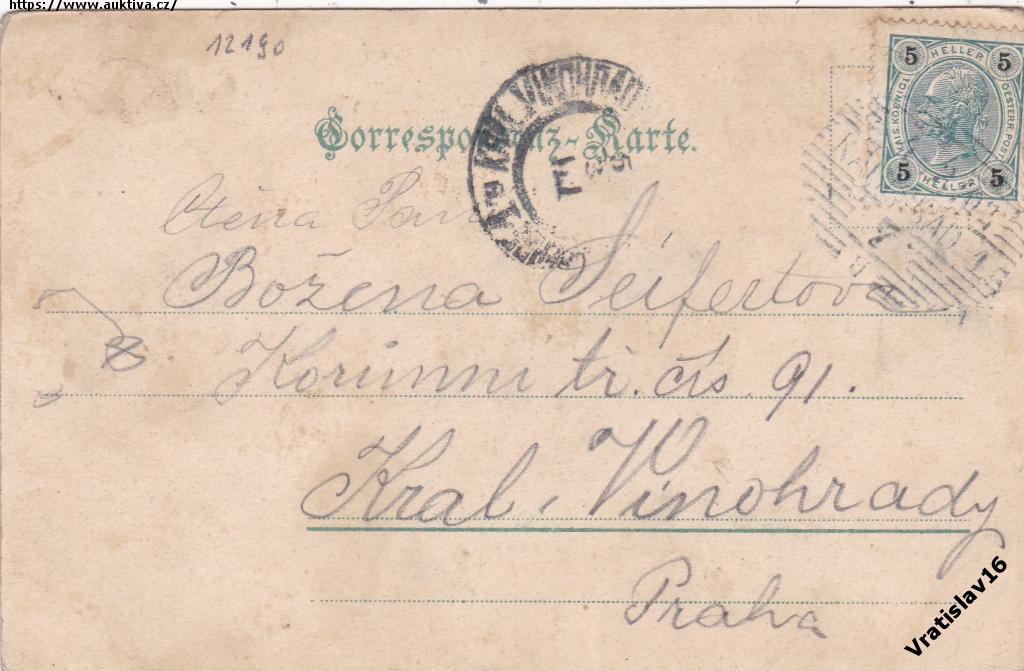 https://www.auktiva.cz/
12190
Correspondenz-Karte.
KRÁL. VINOHRADY
5 HELLER 5
KAIS. KOENIGL. OESTERR. POST
5 HELLER 5
Ctěná Paní
Božena Seifertova
Korunní tř. čís. 91.
Král. Vinohrady
Praha
Vratislav16